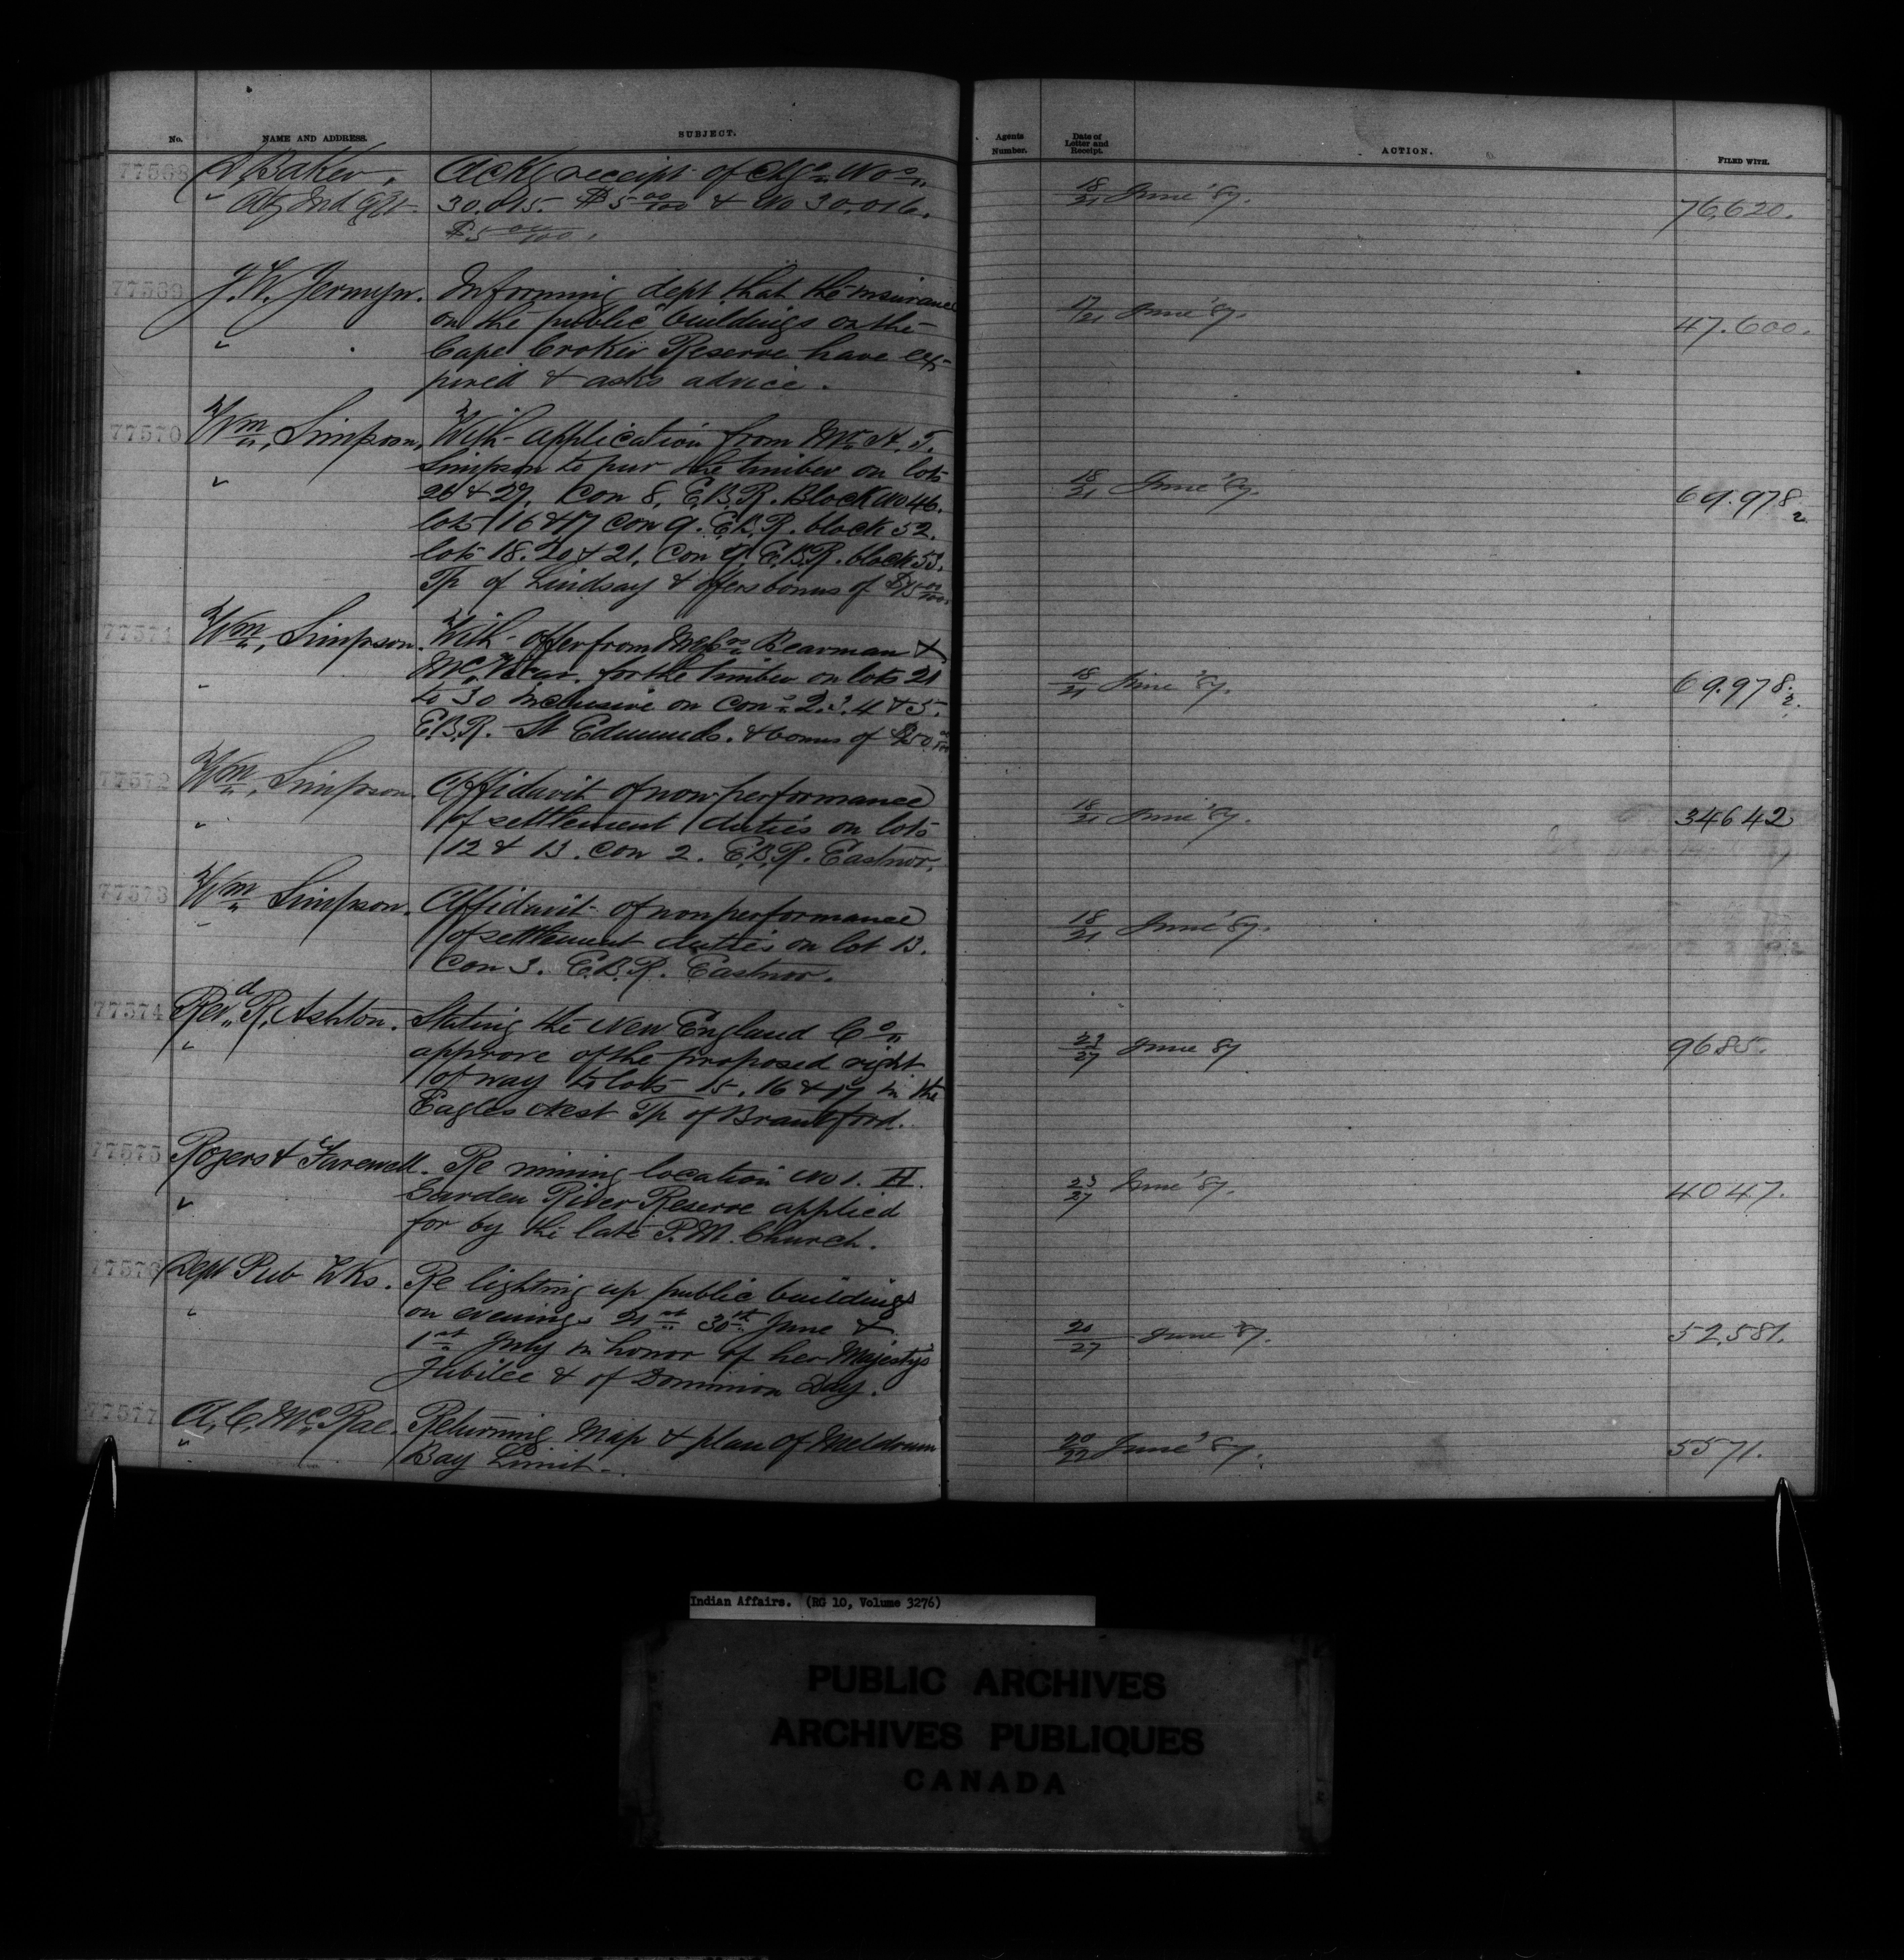 No. NAME AND ADDRESS. SUBJECT. Agents Number. Date of Letter and Receipt. ACTION. FILED WITH.
77568 Baker, Ackg receipt of Nos 18/21 June '87. 76,620.
" Ind Agt. 30.015. $5 00/100 & No 30.016.
$5 00/100.
77569 J. W. Jermyn. Informing dept that the insurance 17/21 June '87. 47.600.
" on the public buildings on the
Cape Croker Reserve have ex-
pired & asks advice.
77570 Wm. Simpson, With application from Mr. H. T.
Simpson to pur the timber on lots
" 26 & 27, Con 8, E.B.R. Block No 46. 18/21 June '87. 69.978 2
lots 16 & 17 Con 9. E.B.R. block 52.
lots 18. 20 & 21. Con E.B.R. block 53.
Tp of Lindsay & offers bonus of
77571 Wm. Simpson. With offer from Bearman &
for the timber on lots 21 18/21 June '87. 69.978. 2.
" to 30 inclusive on cons 2. 3. 4 & 5.
E.B.R. St Edmunds. & bonus of
77572 Wm. Simpson. Affidavit of nonperformance
" of settlement duties on lots 18/21 June '87. 34642
12 & 13. Con 2. E.B.R. Eastnor.
77573 Wm. Simpson. Affidavit of nonperformance
" of settlement duties on lot 13. 18/21 June '87.
Con 3. E.B.R. Eastnor.
77574 Revd. R. Ashton. Stating the New England Co.
" approve of the proposed right 23/27 June 87 9685.
of way to lots 15. 16 & 17 in the
Eagles Nest Tp of Brantford.
77575 Rogers & Farewell. Re mining location No 1. H.
" Garden River Reserve applied 23/27 June '87. 4047.
for by the late P.M. Church.
77576 Dept Pub Wks. Re lighting up public buildings
" on evenings 21st 30th June & 20/27 June '87. 52,581.
1st July in honor of her Majestys
Jubilee & of Dominion Day.
77577 A. C. McRae. Returning Map & plan of Meldrum
" Bay Limit. 20/22 June '87. 5571.
Indian Affairs. (RG 10, Volume 3276)
PUBLIC ARCHIVES
ARCHIVES PUBLIQUES
CANADA